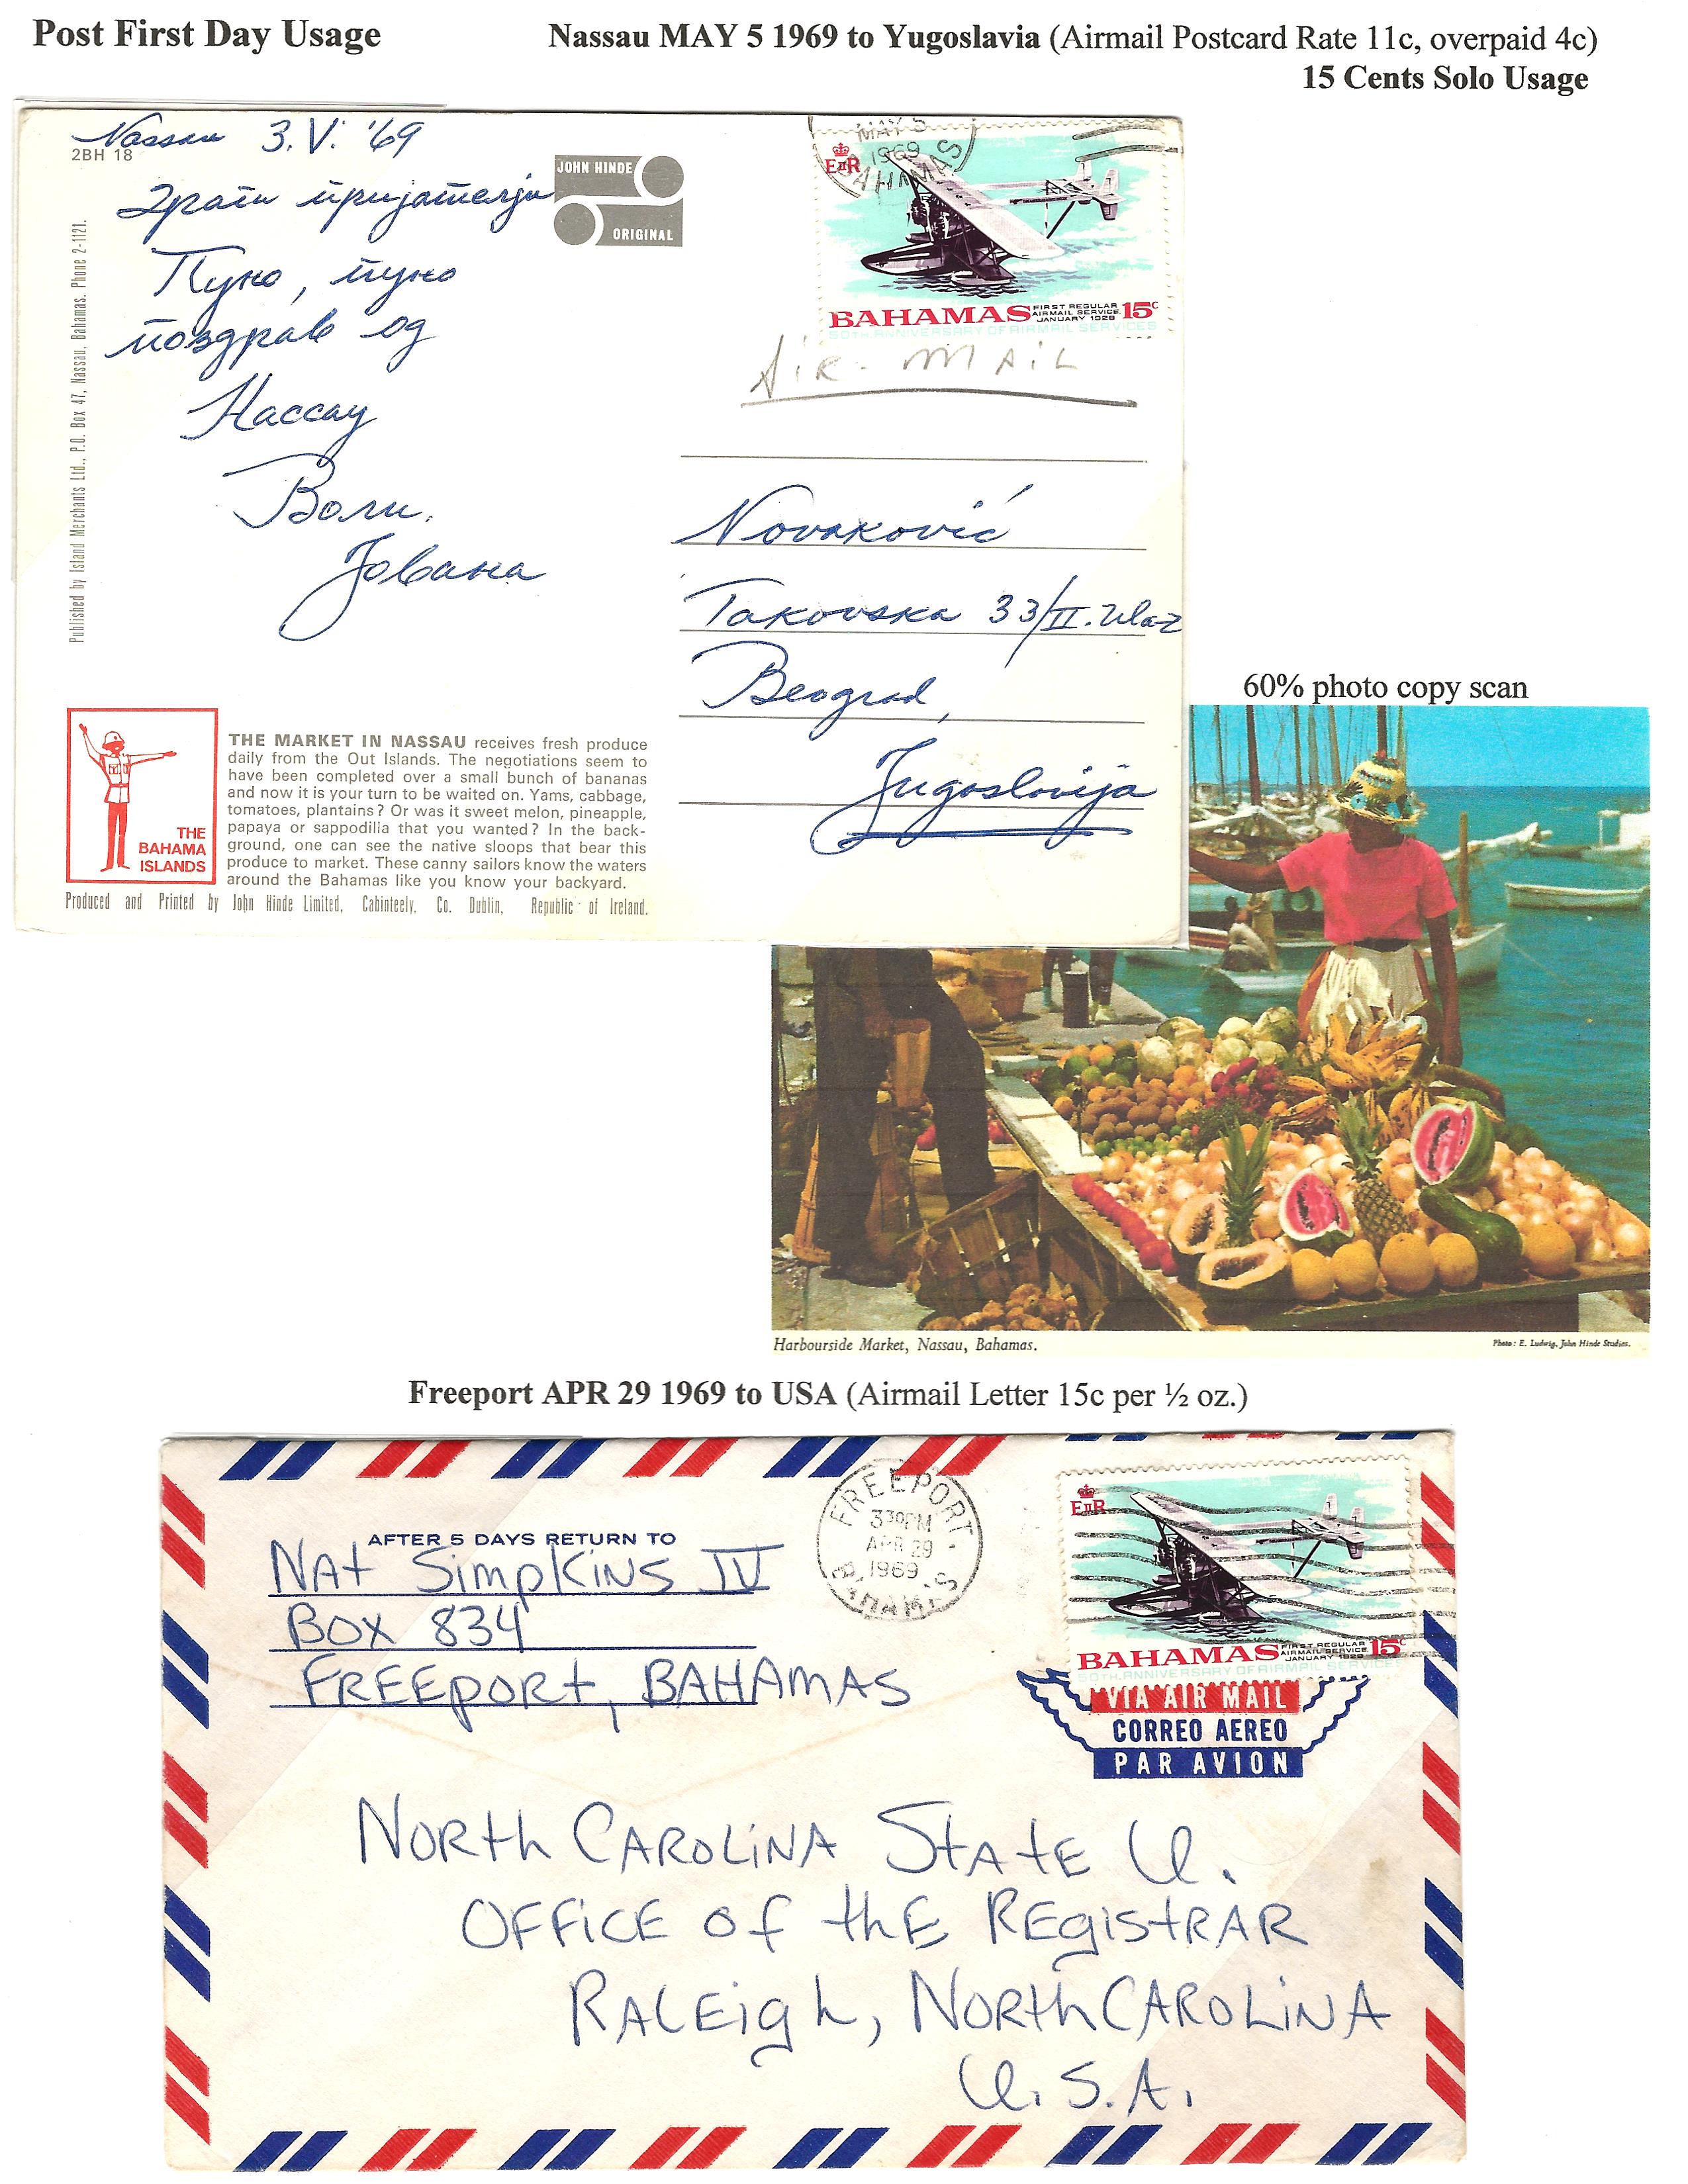 Post First Day Usage
Nassau MAY 5 1969 to Yugoslavia (Airmail Postcard Rate 11c, overpaid 4c)
15 Cents Solo Usage
Nassau 3. V. '69
2BH 18
Драги пријатељи
Пуно, пуно
поздрав од
Нассау
Воли.
Јована
JOHN HINDE
ORIGINAL
Published by Island Merchants Ltd., P.O. Box 47, Nassau, Bahamas. Phone 2-1121.
MAY 5
1969
AHAMAS
EIIR
BAHAMAS
FIRST REGULAR
AIRMAIL SERVICE
JANUARY 1928
15c
50TH ANNIVERSARY OF AIRMAIL SERVICES
AIR-MAIL
Novaković
Takovska 33/II. ulaz
Beograd,
Jugoslovija
THE
BAHAMA
ISLANDS
THE MARKET IN NASSAU receives fresh produce
daily from the Out Islands. The negotiations seem to
have been completed over a small bunch of bananas
and now it is your turn to be waited on. Yams, cabbage,
tomatoes, plantains? Or was it sweet melon, pineapple,
papaya or sappodilia that you wanted? In the back-
ground, one can see the native sloops that bear this
produce to market. These canny sailors know the waters
around the Bahamas like you know your backyard.
Produced and Printed by John Hinde Limited, Cabinteely, Co. Dublin, Republic of Ireland.
60% photo copy scan
Harbourside Market, Nassau, Bahamas.
Photo: E. Ludwig, John Hinde Studios.
Freeport APR 29 1969 to USA (Airmail Letter 15c per ½ oz.)
AFTER 5 DAYS RETURN TO
NAt SimpKiNS IV
BOX 834
FREEpORt, BAHAMAS
FREEPORT
330PM
APR 29
1969
BAHAMAS
EIIR
BAHAMAS
FIRST REGULAR
AIRMAIL SERVICE
JANUARY 1928
15c
50TH ANNIVERSARY OF AIRMAIL SERVICES
VIA AIR MAIL
CORREO AEREO
PAR AVION
NORth CAROLiNA StAtE U.
OFFiCE of thE REgiStRAR
RALEigh, NORth CAROLiNA
U.S.A.